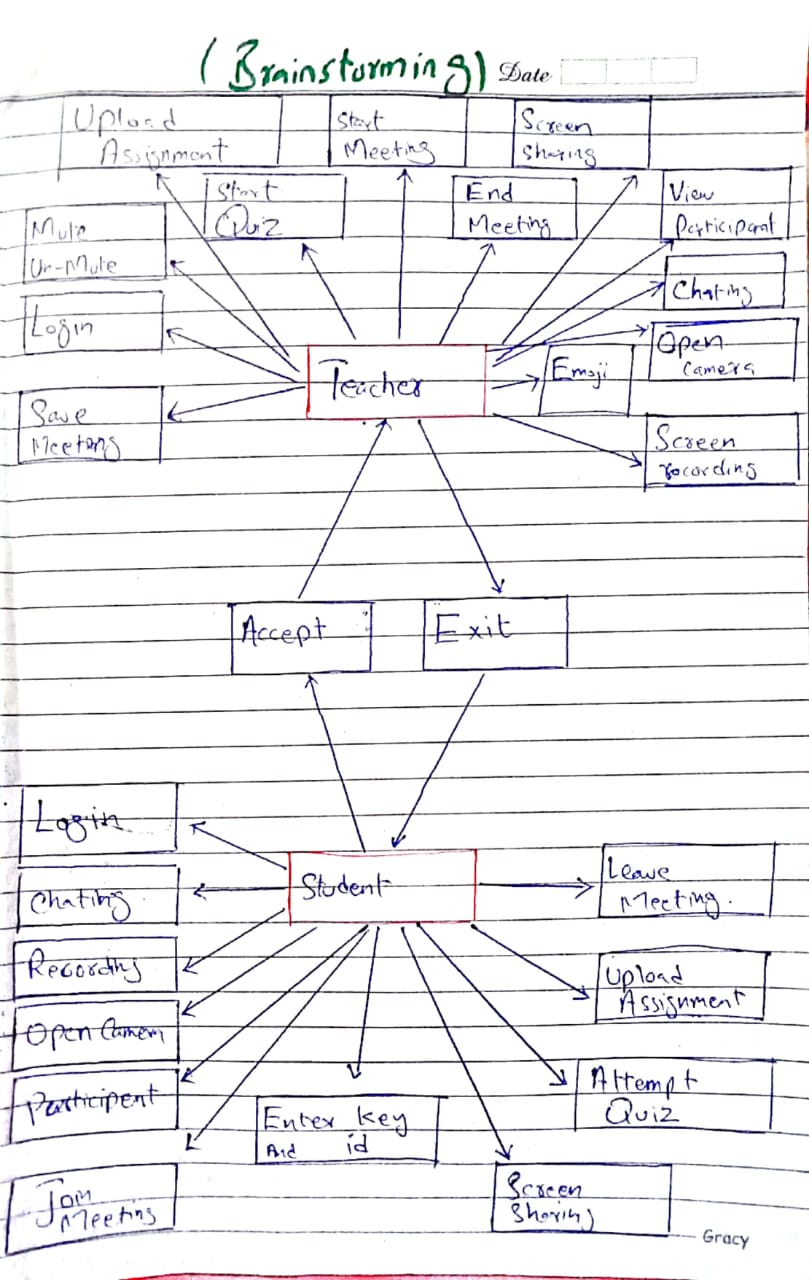 (Brainstorming)
Date
Upload
Assignment
Start
Meeting
Screen
Sharing
Start
Quiz
End
Meeting
View
Participant
Mute
Un-Mute
Chating
Login
Open
Camera
Teacher
Emoji
Save
Meeting
Screen
recording
Accept
Exit
Login
Student
Leave
Meeting.
Chating
Recording
Upload
Assignment
Open Camera
Attempt
Quiz
Participent
Enter key
And id
Join
Meeting
Screen
Sharing
Gracy